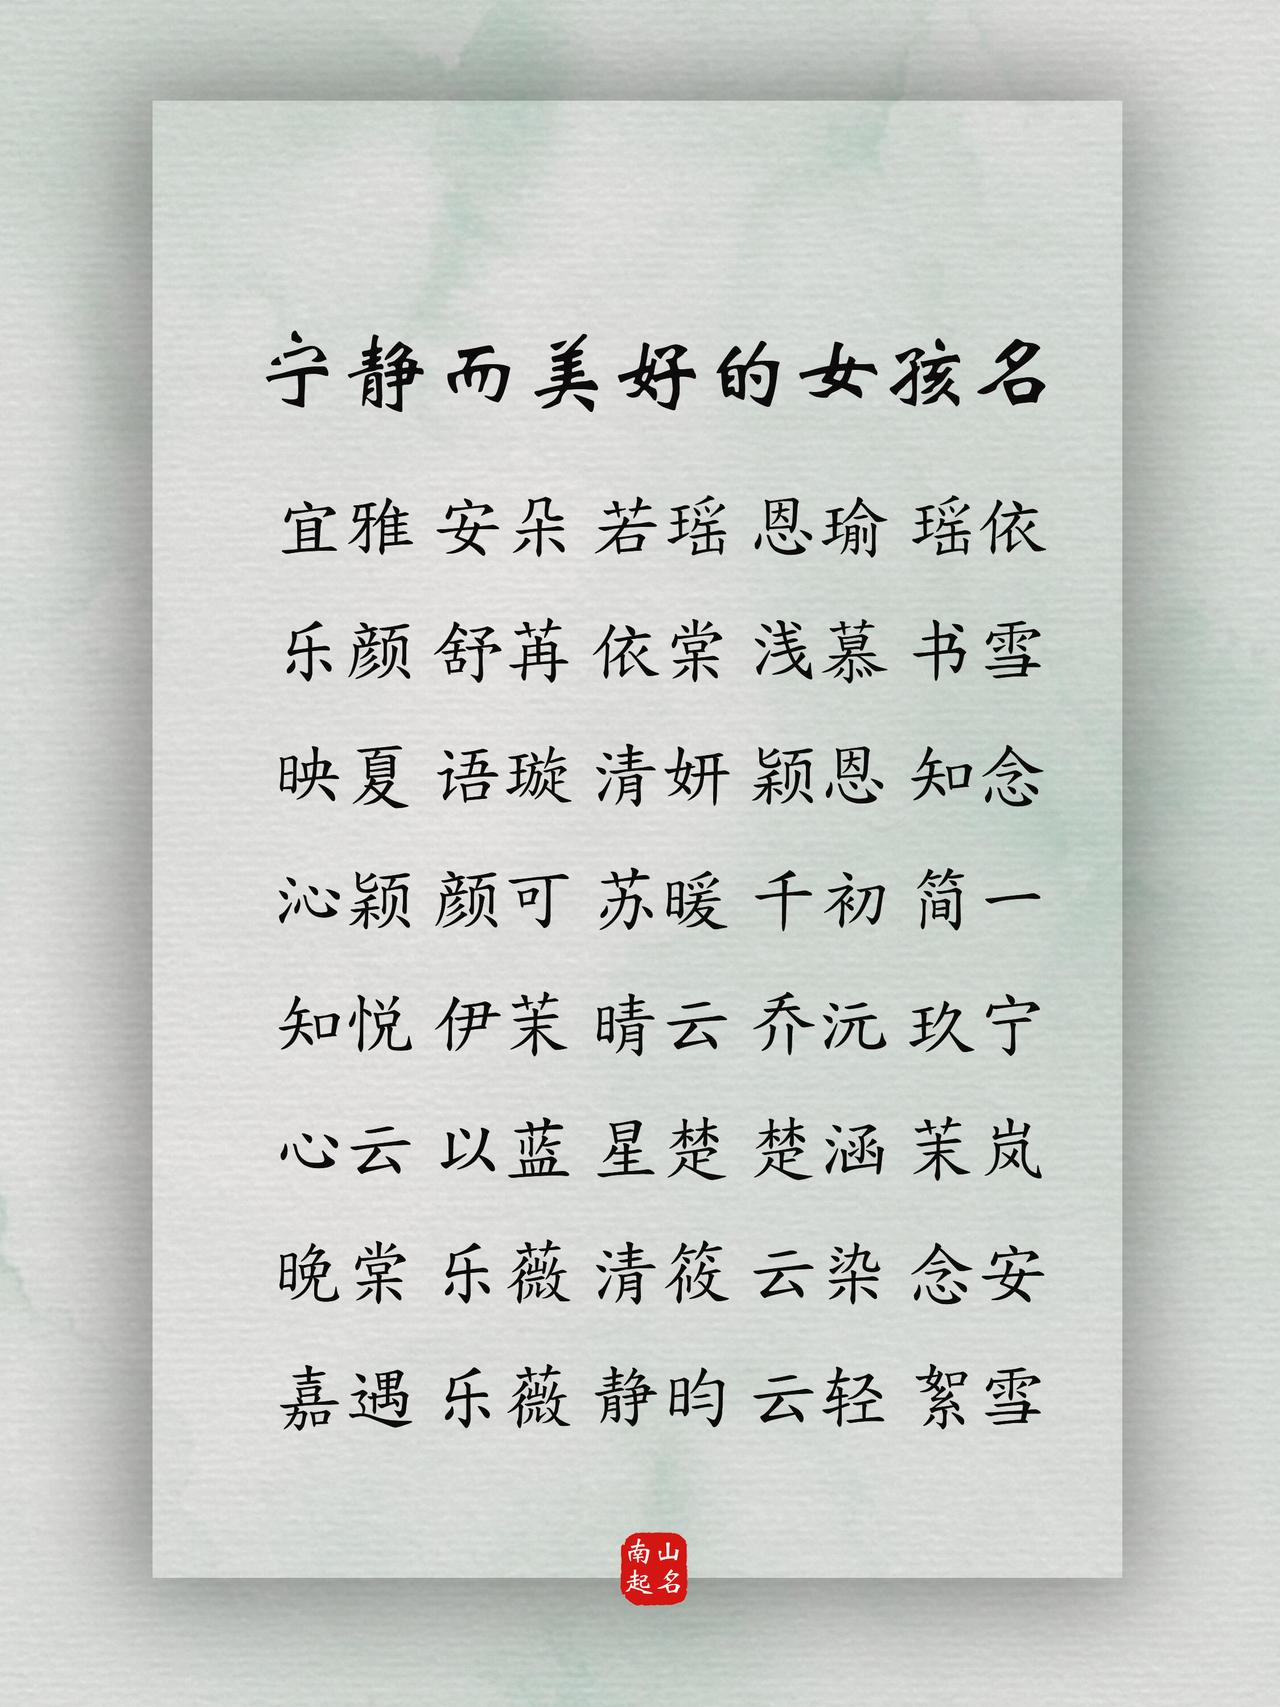 宁静而美好的女孩名
宜雅 安朵 若瑶 恩瑜 瑶依
乐颜 舒苒 依棠 浅慕 书雪
映夏 语璇 清妍 颖恩 知念
沁颖 颜可 苏暖 千初 简一
知悦 伊茉 晴云 乔沅 玖宁
心云 以蓝 星楚 楚涵 茉岚
晚棠 乐薇 清筱 云染 念安
嘉遇 乐薇 静昀 云轻 絮雪
南山
起名